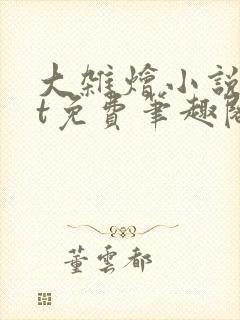 大雜燴小說
t免費筆趣閣
董雲都